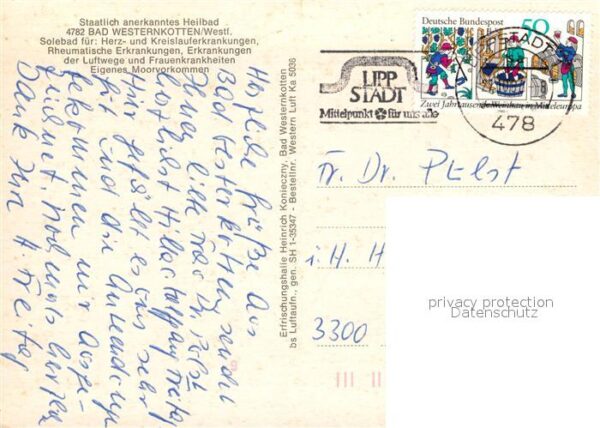 Staatlich anerkanntes Heilbad
4782 BAD WESTERNKOTTEN/Westl.
Solebad für: Herz- und Kreislauferkrankungen,
Rheumatische Erkrankungen, Erkrankungen
der Luftwege und Frauenkrankheiten
Eigenes Moorvorkommen
Herzliche Grüße aus
Bad Westerkotten sendet
Ihnen
Hier gefällt es uns sehr
gut und die Anwendungen
bekommen mir ausge-
zeichnet. Nochmals herzl.
Dank Ihr H. Freitag
Erfrischungshalle Heinrich Konieczny, Bad Westernkotten
bs Luftaufn., gen. SH 1-35347 - Bestellnr. Western Luft Ka 5036
LIPP
STADT
Mittelpunkt für uns alle
Deutsche Bundespost
50
Zwei Jahrtausende Weinbau in Mitteleuropa
478
Fr. Dr. Pelst
i. H. H
3300
privacy protection
Datenschutz